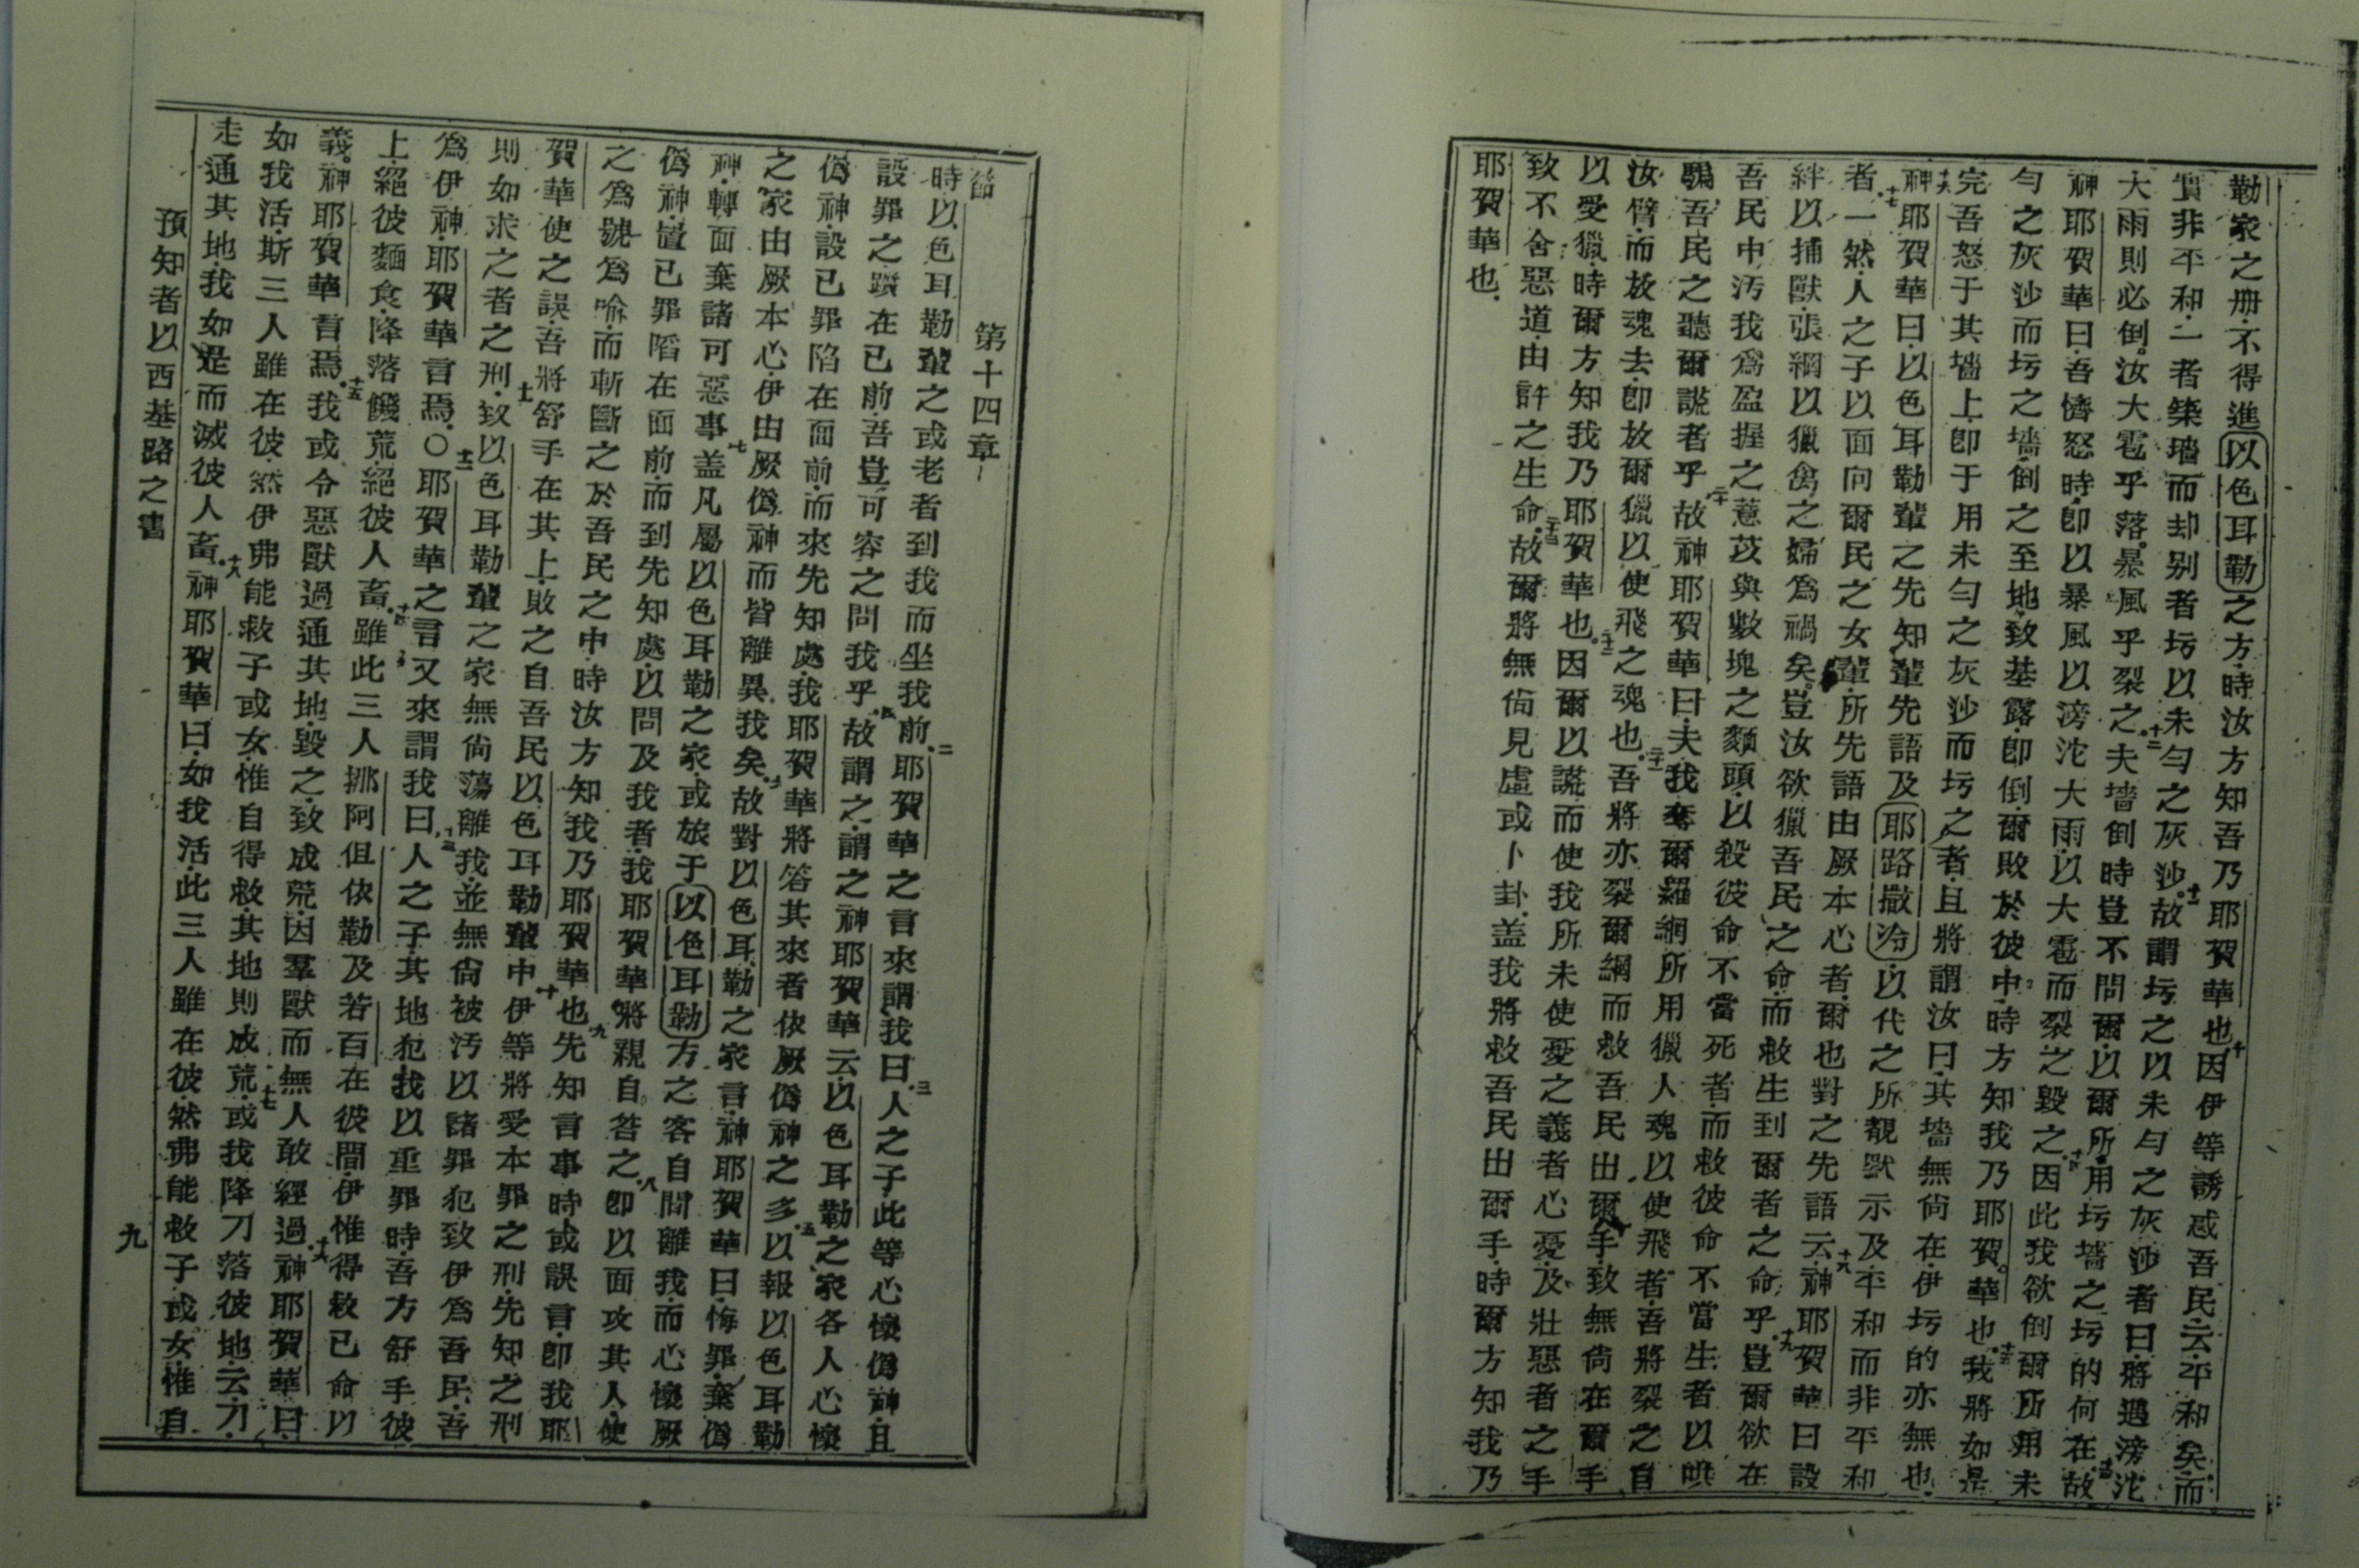 勒家之册·不得進以色耳勒之方·時汝方知吾乃耶賀華也·十因伊等誘惑吾民·云·平和矣·而
實非平和·一者築墻·而却别者圬以未勻之灰沙·十一故謂圬之以未勻之灰沙者曰·將遇滂沱
大雨則必倒·汝大雹乎落·暴風乎裂之·十二夫墻倒時豈不問爾以爾所用圬墻之圬的何在·十三故
神耶賀華曰·吾憤怒時·卽以暴風以滂沱大雨·以大雹而裂之毀之·十四因此我欲倒爾所用未
勻之灰沙而圬之墻·倒之至地·致基露·卽倒·爾敗於彼中·時方知我乃耶賀華也·十五我將如是
完吾怒于其墻上·卽于用未勻之灰沙而圬之者·且將謂汝曰·其墻無尙在·伊圬的亦無也·
十六神耶賀華曰·以色耳勒輩之先知輩先語及耶路撒冷·以代之所覩默示及平和而非平和
者一然·十七人之子以面向爾民之女輩·所先語由厥本心者·爾也對之先語云·十八神耶賀華曰設
絆以捕獸·張網以獵禽之婦為禍矣·豈汝欲獵吾民之命·而救生到爾者之命乎·十九豈爾欲在
吾民中汚我為盈握之薏苡與數塊之麵頭·以殺彼命不當死者·而救彼命不當生者以哄
騙吾民之聽爾謊者乎·二十故神耶賀華曰·夫我奪爾羅網所用獵人魂以使飛者·吾將裂之自
汝臂·而放魂去·卽放爾獵以使飛之魂也·二十一吾將亦裂爾網而救吾民出爾手·致無尙在爾手
以受獵·時爾方知我乃耶賀華也·二十二因爾以謊而使我所未使憂之義者心憂·及壯惡者之手
致不舍惡道·由許之生命·二十三故爾將無尙見虛或卜卦·盖我將救吾民出爾手·時爾方知我乃
耶賀華也·
第十四章
節一時以色耳勒輩之或老者到我而坐我前·二耶賀華之言來謂我曰·三人之子·此等心懷僞神·且
設罪之躓在已前·吾豈可容之問我乎·四故謂之·謂之神耶賀華云·以色耳勒之家各人心懷
僞神·設已罪陷在面前·而來先知處·我耶賀華將答其來者依厥僞神之多·五以報以色耳勒
之家由厥本心·伊由厥僞神而皆離異我矣·六故對以色耳勒之家言·神耶賀華曰·悔罪·棄僞
神·轉面棄諸可惡事·七盖凡屬以色耳勒之家·或旅于以色耳勒方之客自間離我·而心懷厥
僞神·置已罪陷在面前·而到先知處·以問及我者·我耶賀華將親自答之·八卽以面攻其人·使
之為號為喻·而斬斷之於吾民之中·時汝方知我乃耶賀華也·九先知言事時或誤言·卽我耶
賀華使之誤·吾將舒手在其上·敗之自吾民以色耳勒輩中·十伊等將受本罪之刑·先知之刑
則如求之者之刑·十一致以色耳勒輩之家無尙蕩離我·並無尙被汚以諸罪犯·致伊為吾民·吾
為伊神·耶賀華言焉·○十二耶賀華之言又來謂我曰·十三人之子·其地犯我以重罪時·吾方舒手彼
上·絕彼麵食·降落饑荒·絕彼人畜·十四雖此三人挪阿但依勒及若百在彼間·伊惟得救已命以
義·神耶賀華言焉·十五我或令惡獸過通其地·毀之·致成荒·因羣獸而無人敢經過·十六神耶賀華曰·
如我活·斯三人雖在彼·然伊弗能救子或女·惟自得救·其地則成荒·十七或我降刀落彼地·云·刀·
走通其地·我如是而滅彼人畜·十八神耶賀華曰·如我活·此三人雖在彼·然弗能救子·或女·惟自
預知者以西基路之書
九